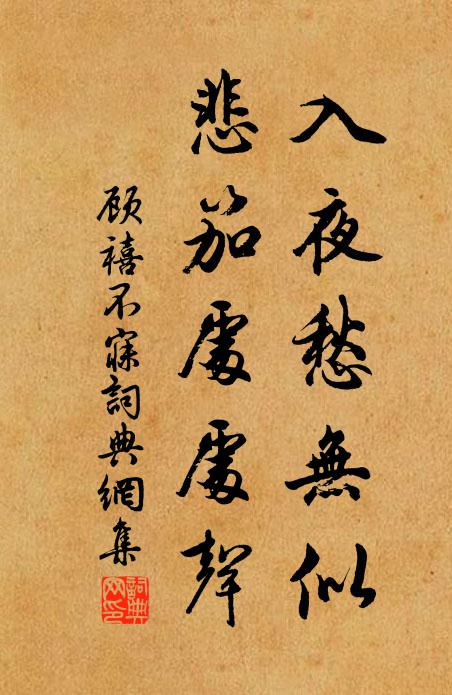 入夜愁無似
悲笳處處聲
顾禧不寐詞典網集
詞典網印